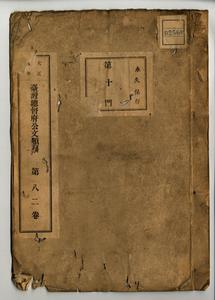 永久保存
第十門
大正
臺灣總督府公文類纂 第八二卷